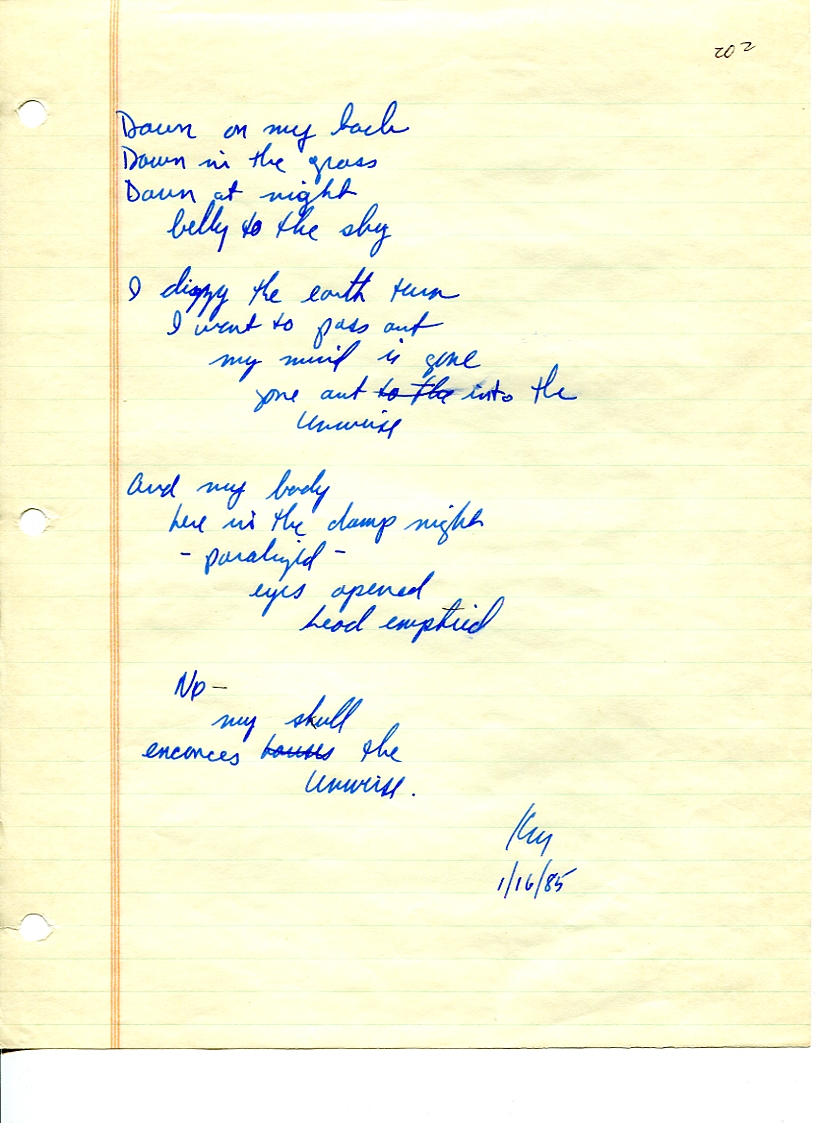 202
Down on my back
Down in the grass
Down at night
belly to the sky
I dizzy the earth turn
I want to pass out
my mind is gone
gone out to the into the
Universe
And my body
here in the damp night
- paralyzed -
eyes opened
head emptied
No -
my skull
enconces houses the
Universe.
1/16/85